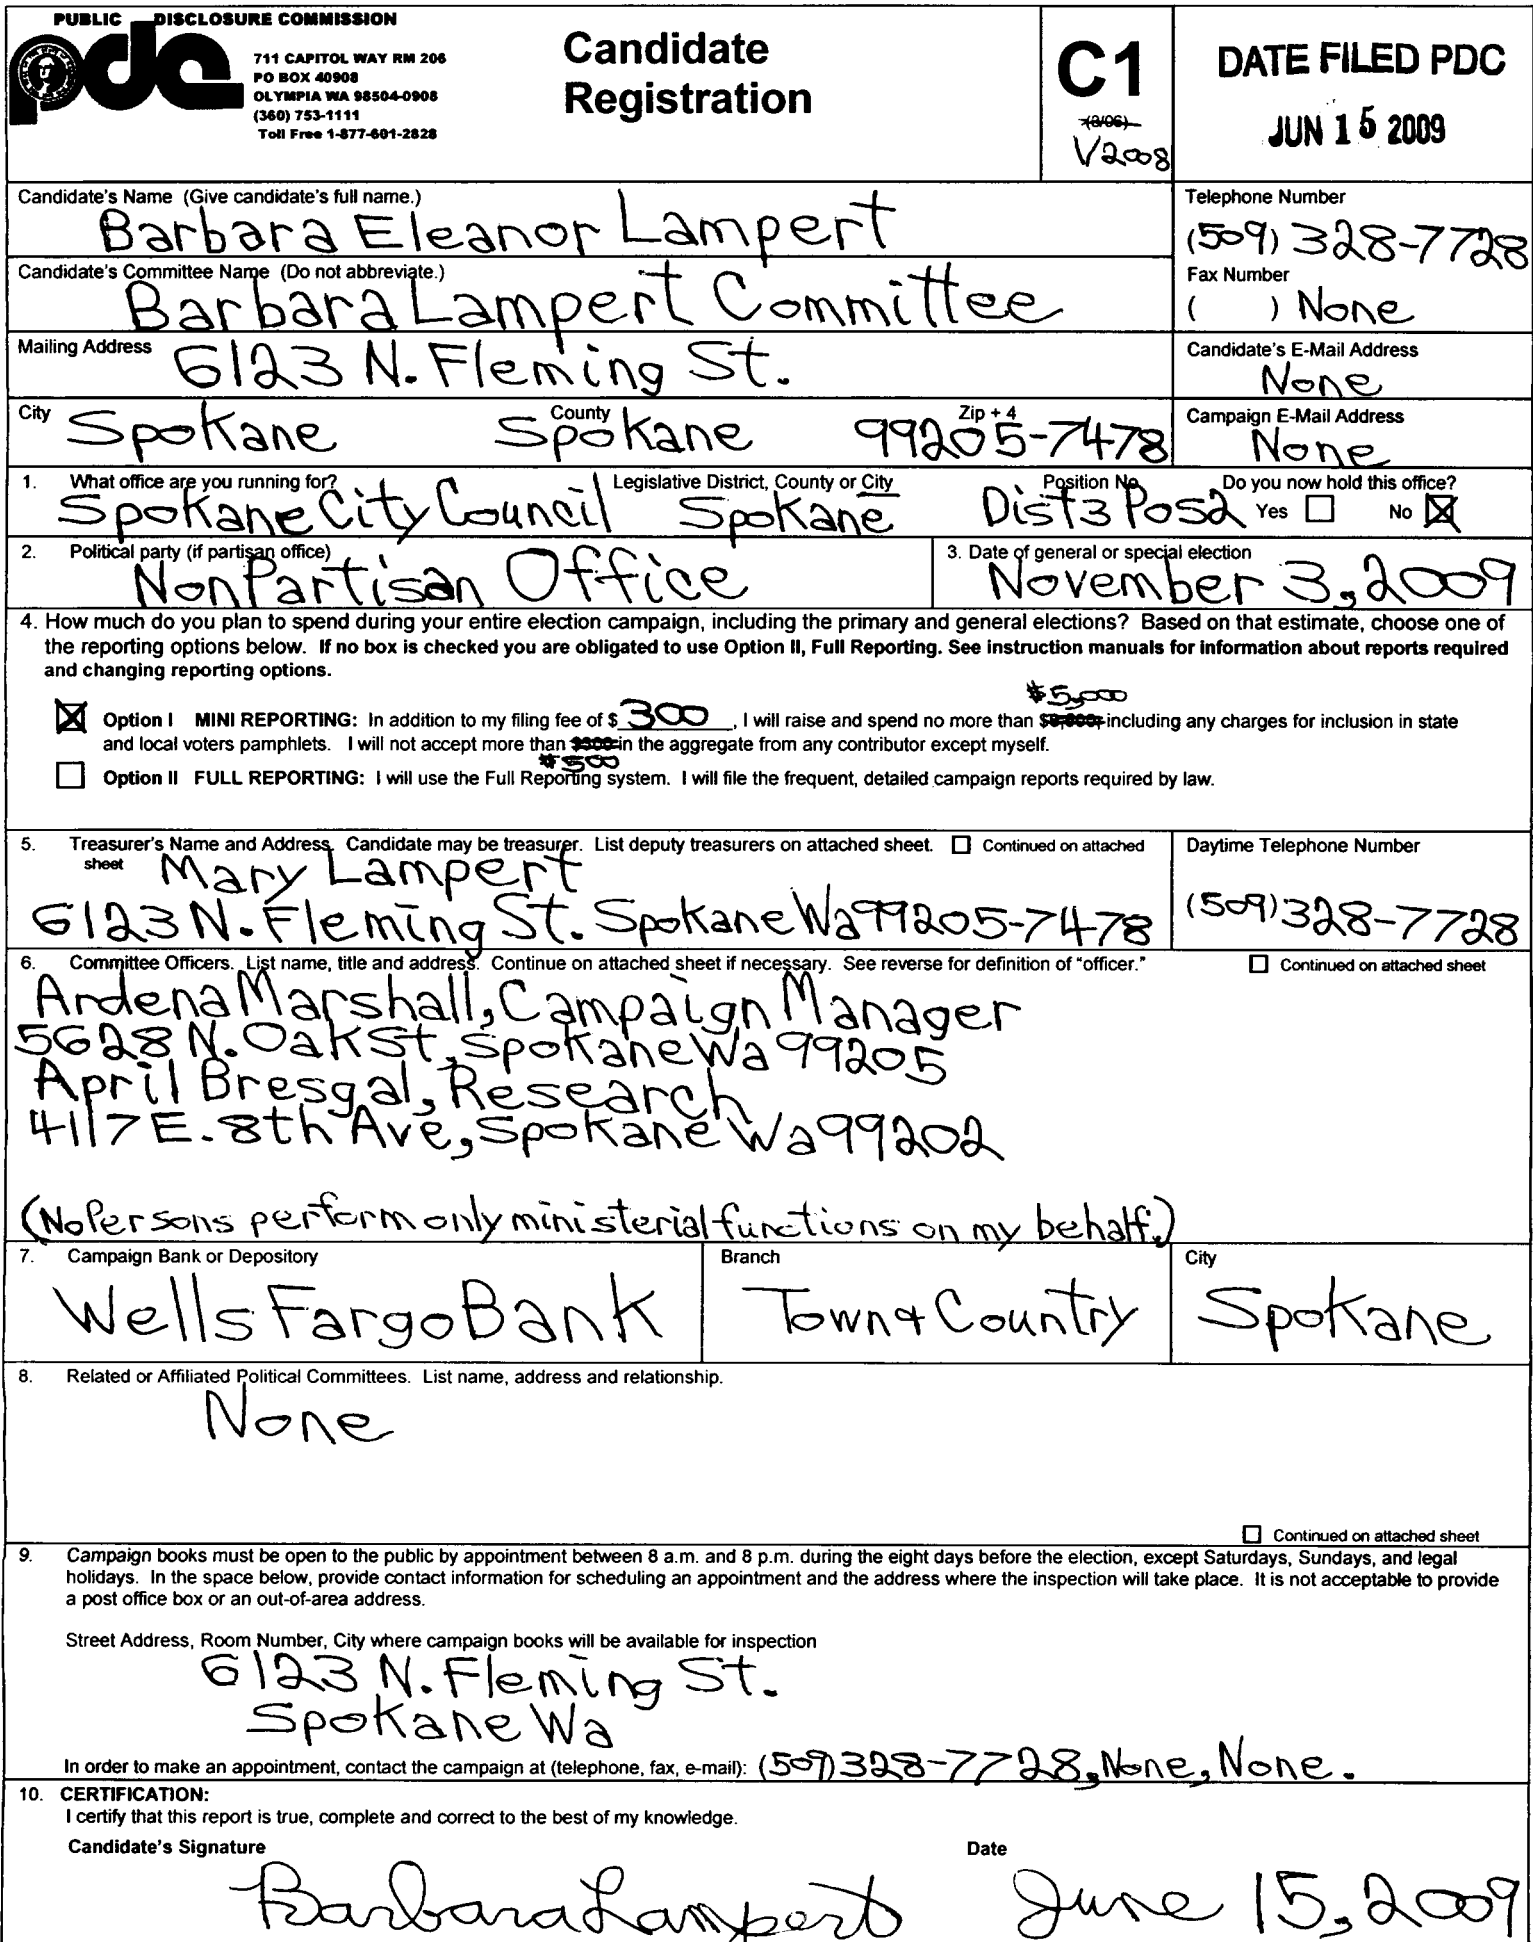 PUBLIC DISCLOSURE COMMISSION
pdc
711 CAPITOL WAY RM 206
PO BOX 40908
OLYMPIA WA 98504-0908
(360) 753-1111
Toll Free 1-877-601-2828
Candidate
Registration
C1
(3/06)
V2008
DATE FILED PDC
JUN 15 2009
Candidate's Name (Give candidate's full name.)
Barbara Eleanor Lampert
Telephone Number
(509) 328-7728
Candidate's Committee Name (Do not abbreviate.)
Barbara Lampert Committee
Fax Number
( ) None
Mailing Address
6123 N. Fleming St.
Candidate's E-Mail Address
None
City County Zip + 4
Spokane Spokane 99205-7478
Campaign E-Mail Address
None
1. What office are you running for? Legislative District, County or City Position No. Do you now hold this office?
Spokane City Council Spokane Dist3 Pos2 Yes No
2. Political party (if partisan office)
NonPartisan Office
3. Date of general or special election
November 3, 2009
4. How much do you plan to spend during your entire election campaign, including the primary and general elections? Based on that estimate, choose one of
the reporting options below. If no box is checked you are obligated to use Option II, Full Reporting. See instruction manuals for information about reports required
and changing reporting options.
$5,000
Option I MINI REPORTING: In addition to my filing fee of $ 300, I will raise and spend no more than including any charges for inclusion in state
and local voters pamphlets. I will not accept more than in the aggregate from any contributor except myself.
$500
Option II FULL REPORTING: I will use the Full Reporting system. I will file the frequent, detailed campaign reports required by law.
5. Treasurer's Name and Address. Candidate may be treasurer. List deputy treasurers on attached sheet. Continued on attached
sheet
Mary Lampert
6123 N. Fleming St. Spokane Wa 99205-7478
Daytime Telephone Number
(509) 328-7728
6. Committee Officers. List name, title and address. Continue on attached sheet if necessary. See reverse for definition of "officer." Continued on attached sheet
Ardena Marshall, Campaign Manager
5628 N. Oak St, Spokane Wa 99205
April Bresgal, Research
4117 E. 8th Ave, Spokane Wa 99202
(No Persons perform only ministerial functions on my behalf.)
7. Campaign Bank or Depository
Wells Fargo Bank
Branch
Town & Country
City
Spokane
8. Related or Affiliated Political Committees. List name, address and relationship.
None
Continued on attached sheet
9. Campaign books must be open to the public by appointment between 8 a.m. and 8 p.m. during the eight days before the election, except Saturdays, Sundays, and legal
holidays. In the space below, provide contact information for scheduling an appointment and the address where the inspection will take place. It is not acceptable to provide
a post office box or an out-of-area address.
Street Address, Room Number, City where campaign books will be available for inspection
6123 N. Fleming St.
Spokane Wa
In order to make an appointment, contact the campaign at (telephone, fax, e-mail): (509) 328-7728, None, None.
10. CERTIFICATION:
I certify that this report is true, complete and correct to the best of my knowledge.
Candidate's Signature Date
Barbara Lampert June 15, 2009